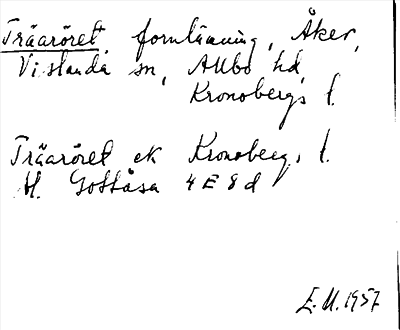 Träaröret, fornlämning, Åker,
Vislanda sn, Allbo hd,
Kronobergs l.
Träaröret ek Kronobergs l.
Bl. Gottåsa 4 E 8 d
E.U. 1957